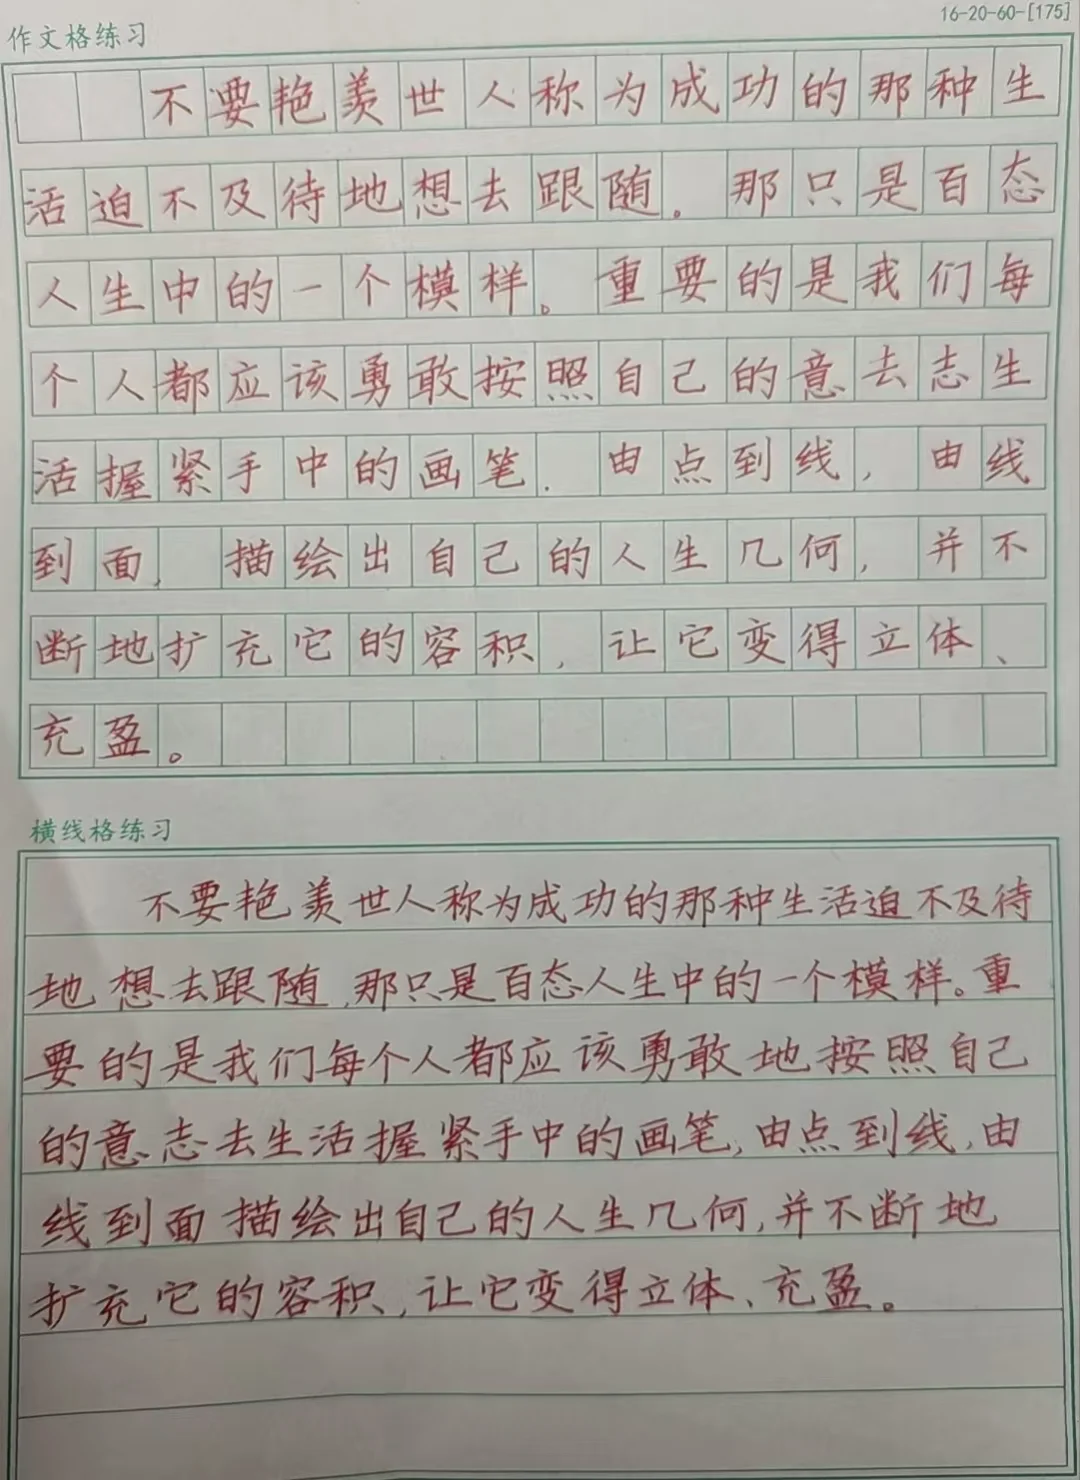 16-20-60-[175]
作文格练习
不要艳羡世人称为成功的那种生
活迫不及待地想去跟随。那只是百态
人生中的一个模样。重要的是我们每
个人都应该勇敢按照自己的意去志生
活握紧手中的画笔.由点到线,由线
到面,描绘出自己的人生几何,并不
断地扩充它的容积,让它变得立体、
充盈。
横线格练习
不要艳羡世人称为成功的那种生活迫不及待
地想去跟随,那只是百态人生中的一个模样。重
要的是我们每个人都应该勇敢地按照自己
的意志去生活握紧手中的画笔,由点到线,由
线到面描绘出自己的人生几何,并不断地
扩充它的容积,让它变得立体、充盈。